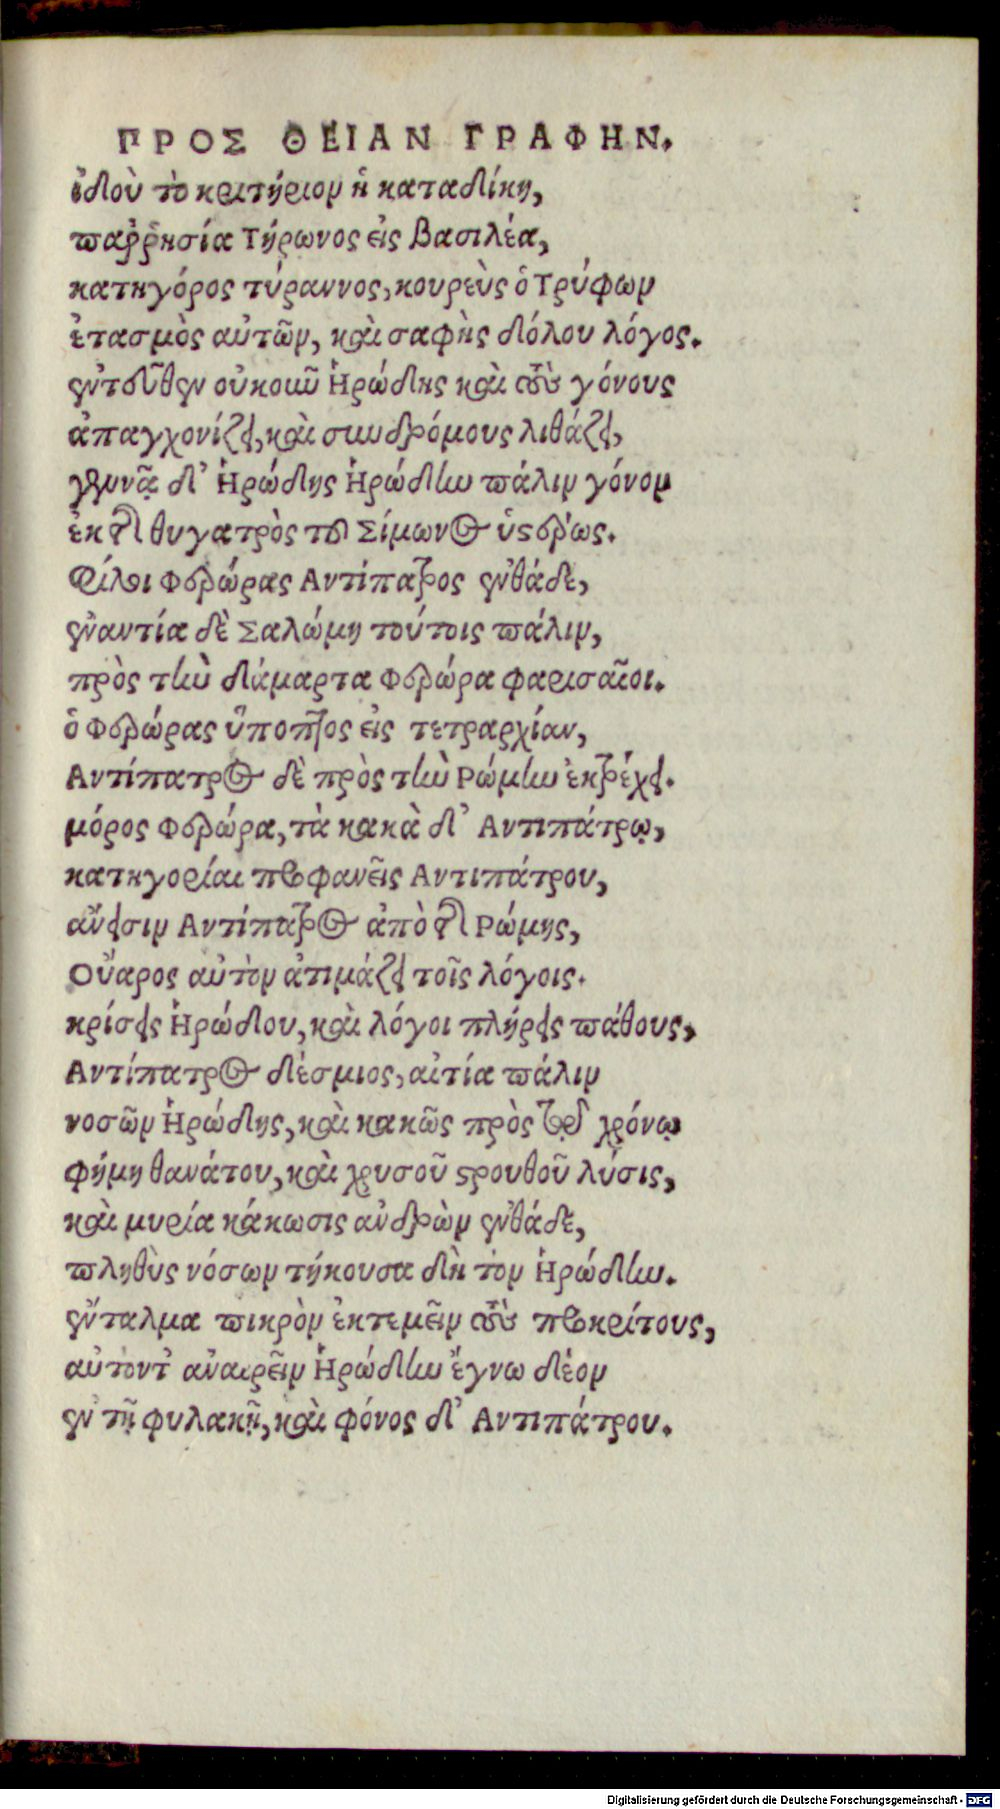 ΠΡΟΣ ΘΕΙΑΝ ΓΡΑΦΗΝ.
ἰδοὺ τὸ κριτήριον ἡ καταδίκη,
παῤῥησία Τήρωνος εἰς βασιλέα,
κατηγόρος τύραννος, κουρεὺς ὁ Τρύφων
ἐτασμὸς αὐτῶν, καὶ σαφὴς δόλου λόγος.
ἐντεῦθεν οὐκοιῦ Ἡρώδης καὶ τοὺς γόνους
ἀπαγχονίζει, καὶ συνδρόμους λιθάζει,
γεννᾷ δ' Ἡρώδης Ἡρώδην πάλιν γόνον
ἐκ τῆς θυγατρὸς τοῦ Σίμωνος ὑστέρως.
Φίλοι Φερώρας Αντίπατρος ἐνθάδε,
ἐναντία δὲ Σαλώμη τούτοις πάλιν,
πρὸς τὴν δάμαρτα Φερώρα φαρισαῖοι.
ὁ Φερώρας ὕποπτος εἰς τετραρχίαν,
Αντίπατρος δὲ πρὸς τὴν Ρώμην ἐκτρέχει.
μόρος Φερώρα, τὰ κακὰ δ' Αντιπάτρῳ,
κατηγορίαι προφανεῖς Αντιπάτρου,
ἄνεισιν Αντίπατρος ἀπὸ τῆς Ρώμης,
Οὔαρος αὐτὸν ἀτιμάζει τοῖς λόγοις.
κρίσεις Ἡρώδου, καὶ λόγοι πλήρεις πάθους,
Αντίπατρος δέσμιος, αἰτία πάλιν
νοσῶν Ἡρώδης, καὶ κακῶς πρὸς τῷ χρόνῳ
φήμη θανάτου, καὶ χρυσοῦ στρουθοῦ λύσις,
καὶ μυρία κάκωσις ἀνδρὼν ἐνθάδε,
πληθὺς νόσων τήκουσα δὴ τὸν Ἡρώδην.
ἔνταλμα πικρὸν ἐκτεμεῖν τοὺς προκρίτους,
αὐτόντ' ἀναιρεῖν Ἡρώδην ἔγνω δέον
ἐν τῇ φυλακῇ, καὶ φόνος δ' Αντιπάτρου.
Digitalisierung gefördert durch die Deutsche Forschungsgemeinschaft - DFG